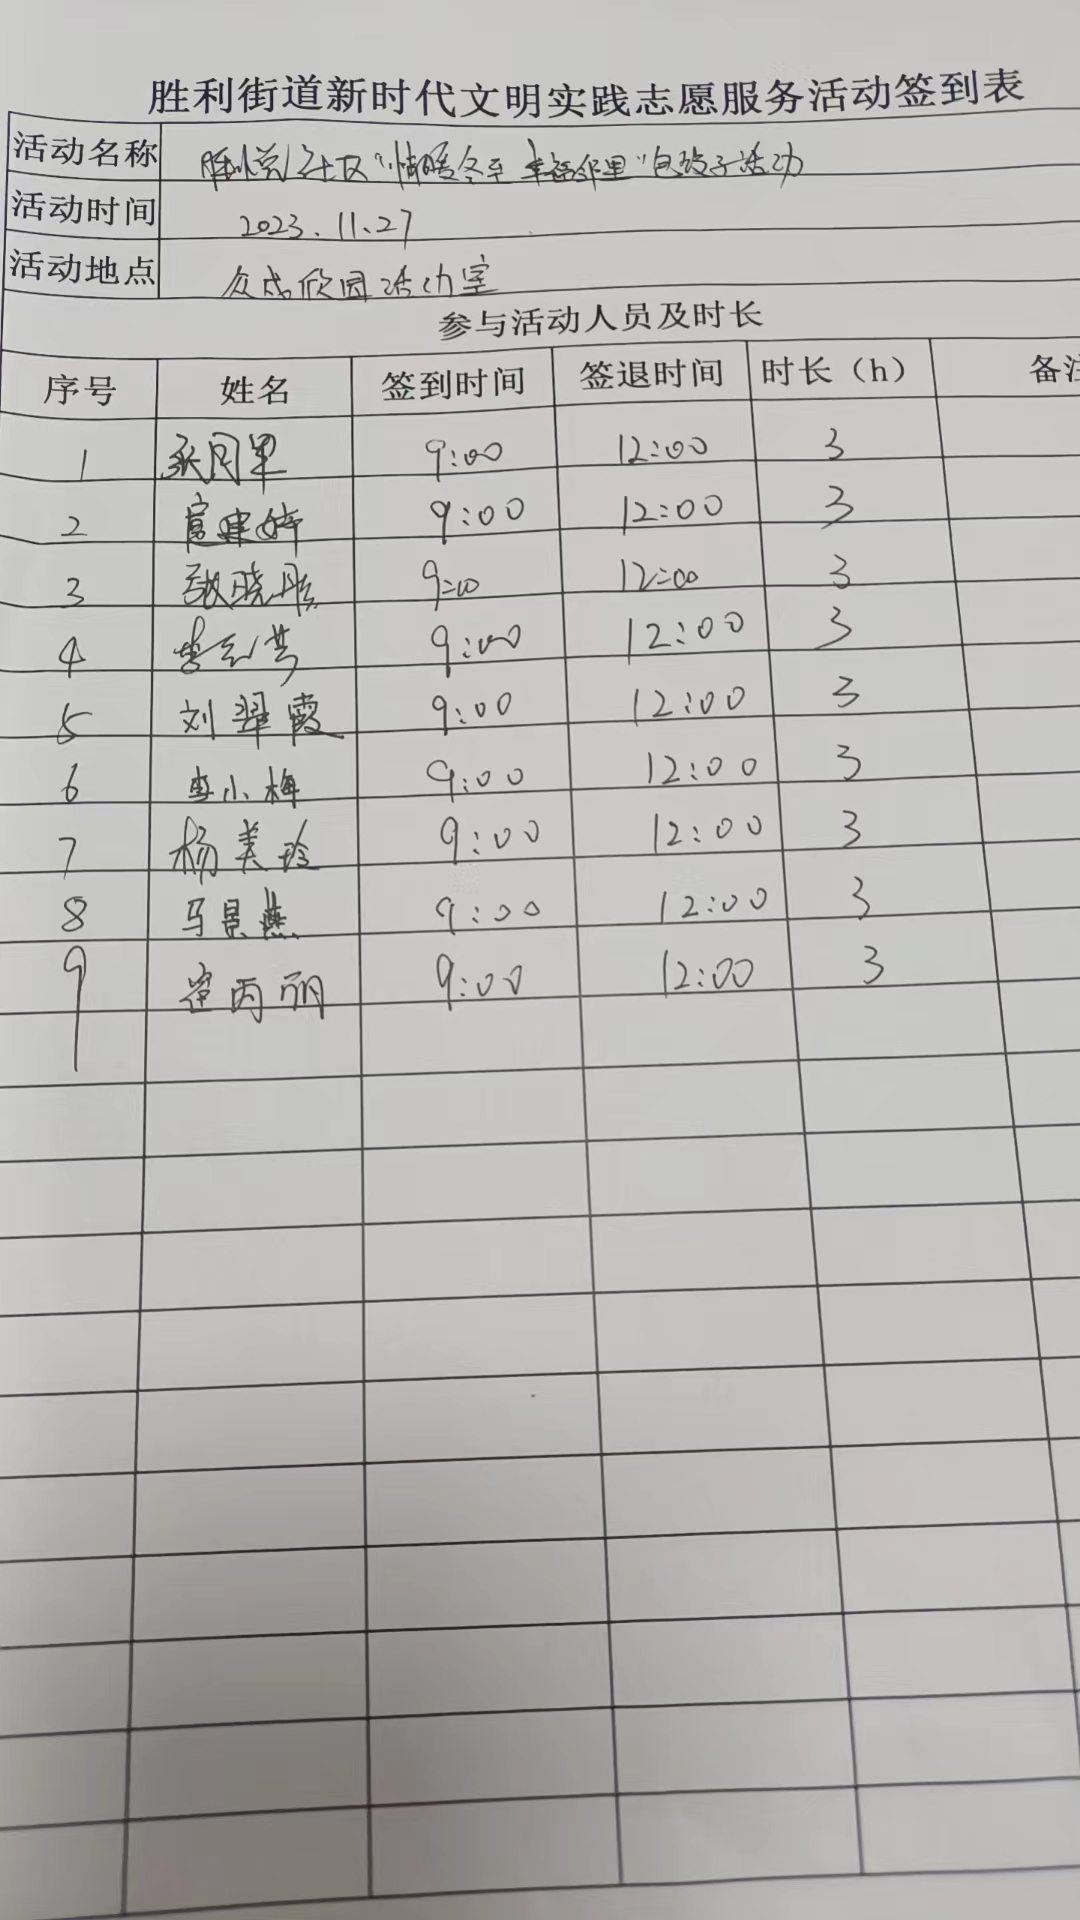 胜利街道新时代文明实践志愿服务活动签到表
活动名称 社区“情暖冬至 幸福邻里”包饺子活动
活动时间 2023.11.27
活动地点 众成欣园活动室
参与活动人员及时长
序号 姓名 签到时间 签退时间 时长（h） 备
1 9:00 12:00 3
2 9:00 12:00 3
3 张晓彤 9:00 12:00 3
4 9:00 12:00 3
5 刘翠霞 9:00 12:00 3
6 李小梅 9:00 12:00 3
7 杨美玲 9:00 12:00 3
8 马景燕 9:00 12:00 3
9 崔丙丽 9:00 12:00 3